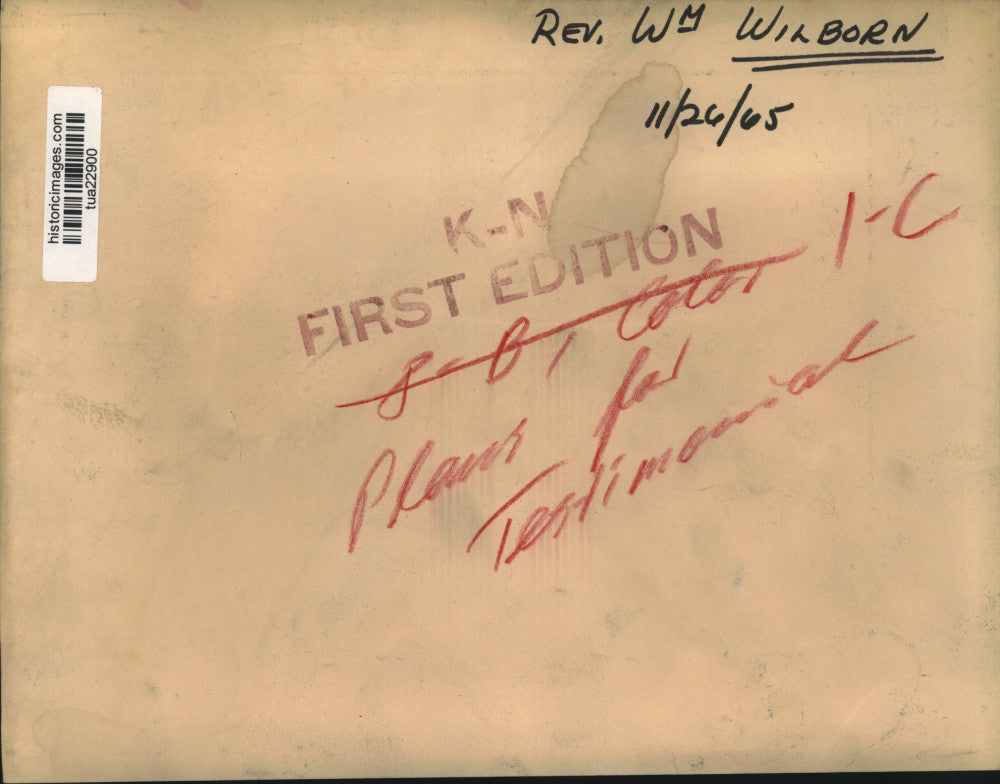 REV. WM WILBORN
11/26/65
historicimages.com
tua22900
K-N
FIRST EDITION
1-C
8-B, Color
Plans for
Testimonial